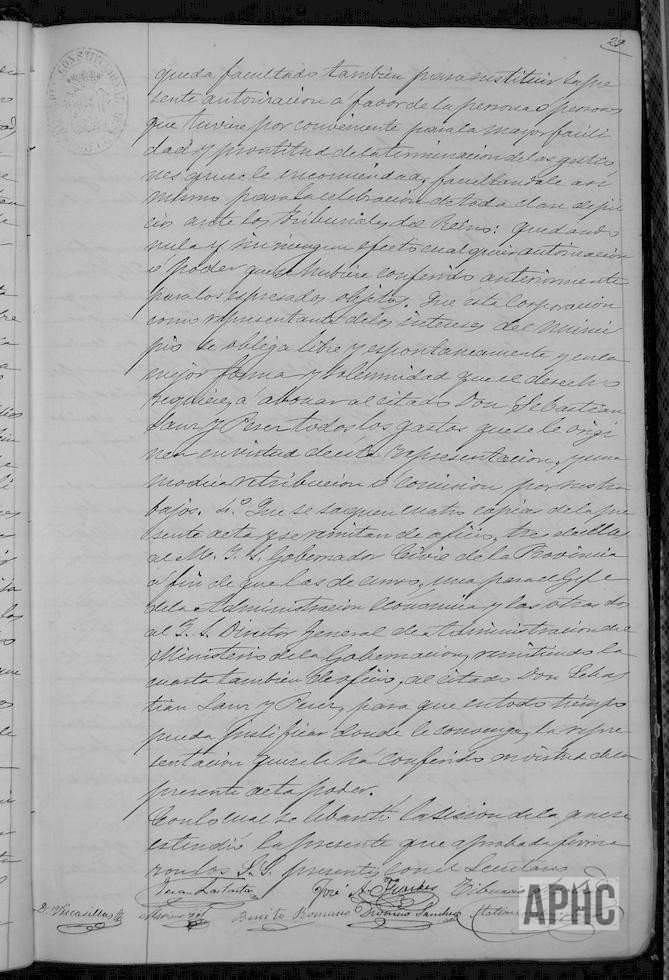 29
queda facultado tambien para sustituir la pre
sente autorizacion á favor de la persona ó personas
que tuviere por conveniente para la mayor facili
dad y prontitud de la terminacion de las gestio
nes que se le encomiendan, facultandole asi
mismo para la celebracion de toda clase de jui
cios ante los Tribunales del Reino: quedando
nula y sin ningun efecto cualquier autorizacion
ó poder que se hubiere conferido anteriormente
para los espresados objetos. Que esta Corporacion
como representante de los intereses del Munici
pio se obliga libre y espontaneamente y en la
mejor forma y solemnidad que el derecho
requiere, a abonar al citado Don Sebastian
Sanz y Perez todos los gastos que se le origi
nen en virtud de esta representacion, y una
modica retribucion ó comision por sus tra
bajos. Que se saquen cuatro copias de la pre
sente acta y se remitan de oficio, tres de ellas
al M. I. S. Gobernador Civil de la Provincia
a fin de que las de curso, una para el Gefe
de la Administracion Económica y las otras dos
al I. S. Director General de Administracion del
Ministerio de la Gobernacion, remitiendo la
cuarta tambien de oficio, al citado Don Sebas
tian Sanz y Perez, para que en todo tiempo
pueda justificar donde le convenga, la repre
sentacion que se le há conferido en virtud de la
presente acta poder.
Con lo cual se lebantó la sesion de la que se
estendió la presente que aprobada firma
ron los S.S. presentes con el Secretario
José A.
Benito Romano Sanchez
APHC